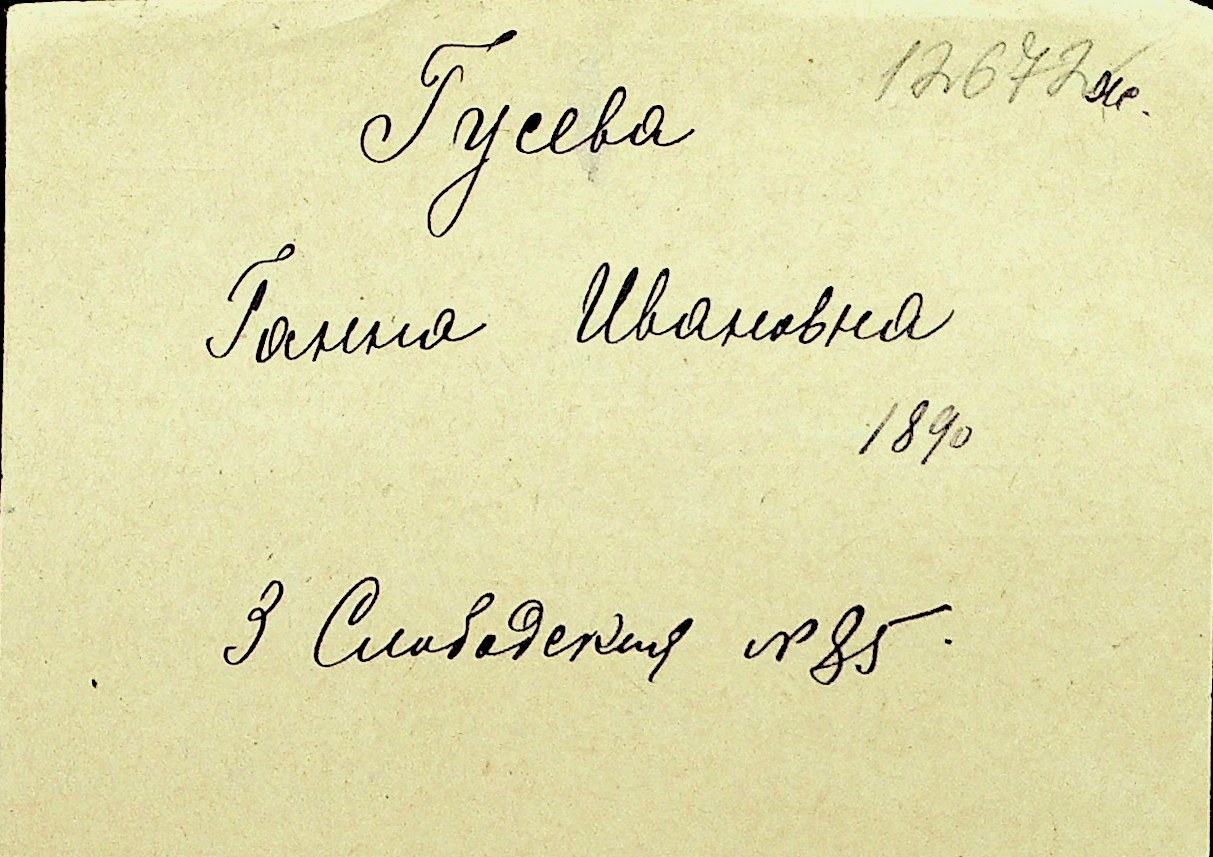 12672 ж.
Гусева
Ганна Ивановна
1890
3 Слободская № 85.